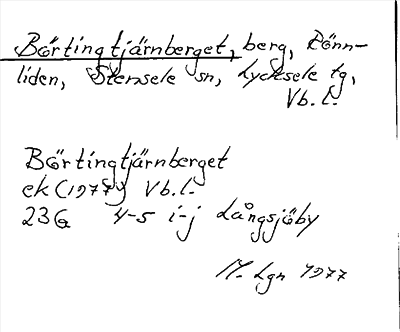 Börtingtjärnberget, berg, Rönn-
liden, Stensele sn, Lycksele tg,
Vb. l.
Börtingtjärnberget
ek (1977) Vb. l.
23G 4-5 i-j Långsjöby
M. Lgn 1977